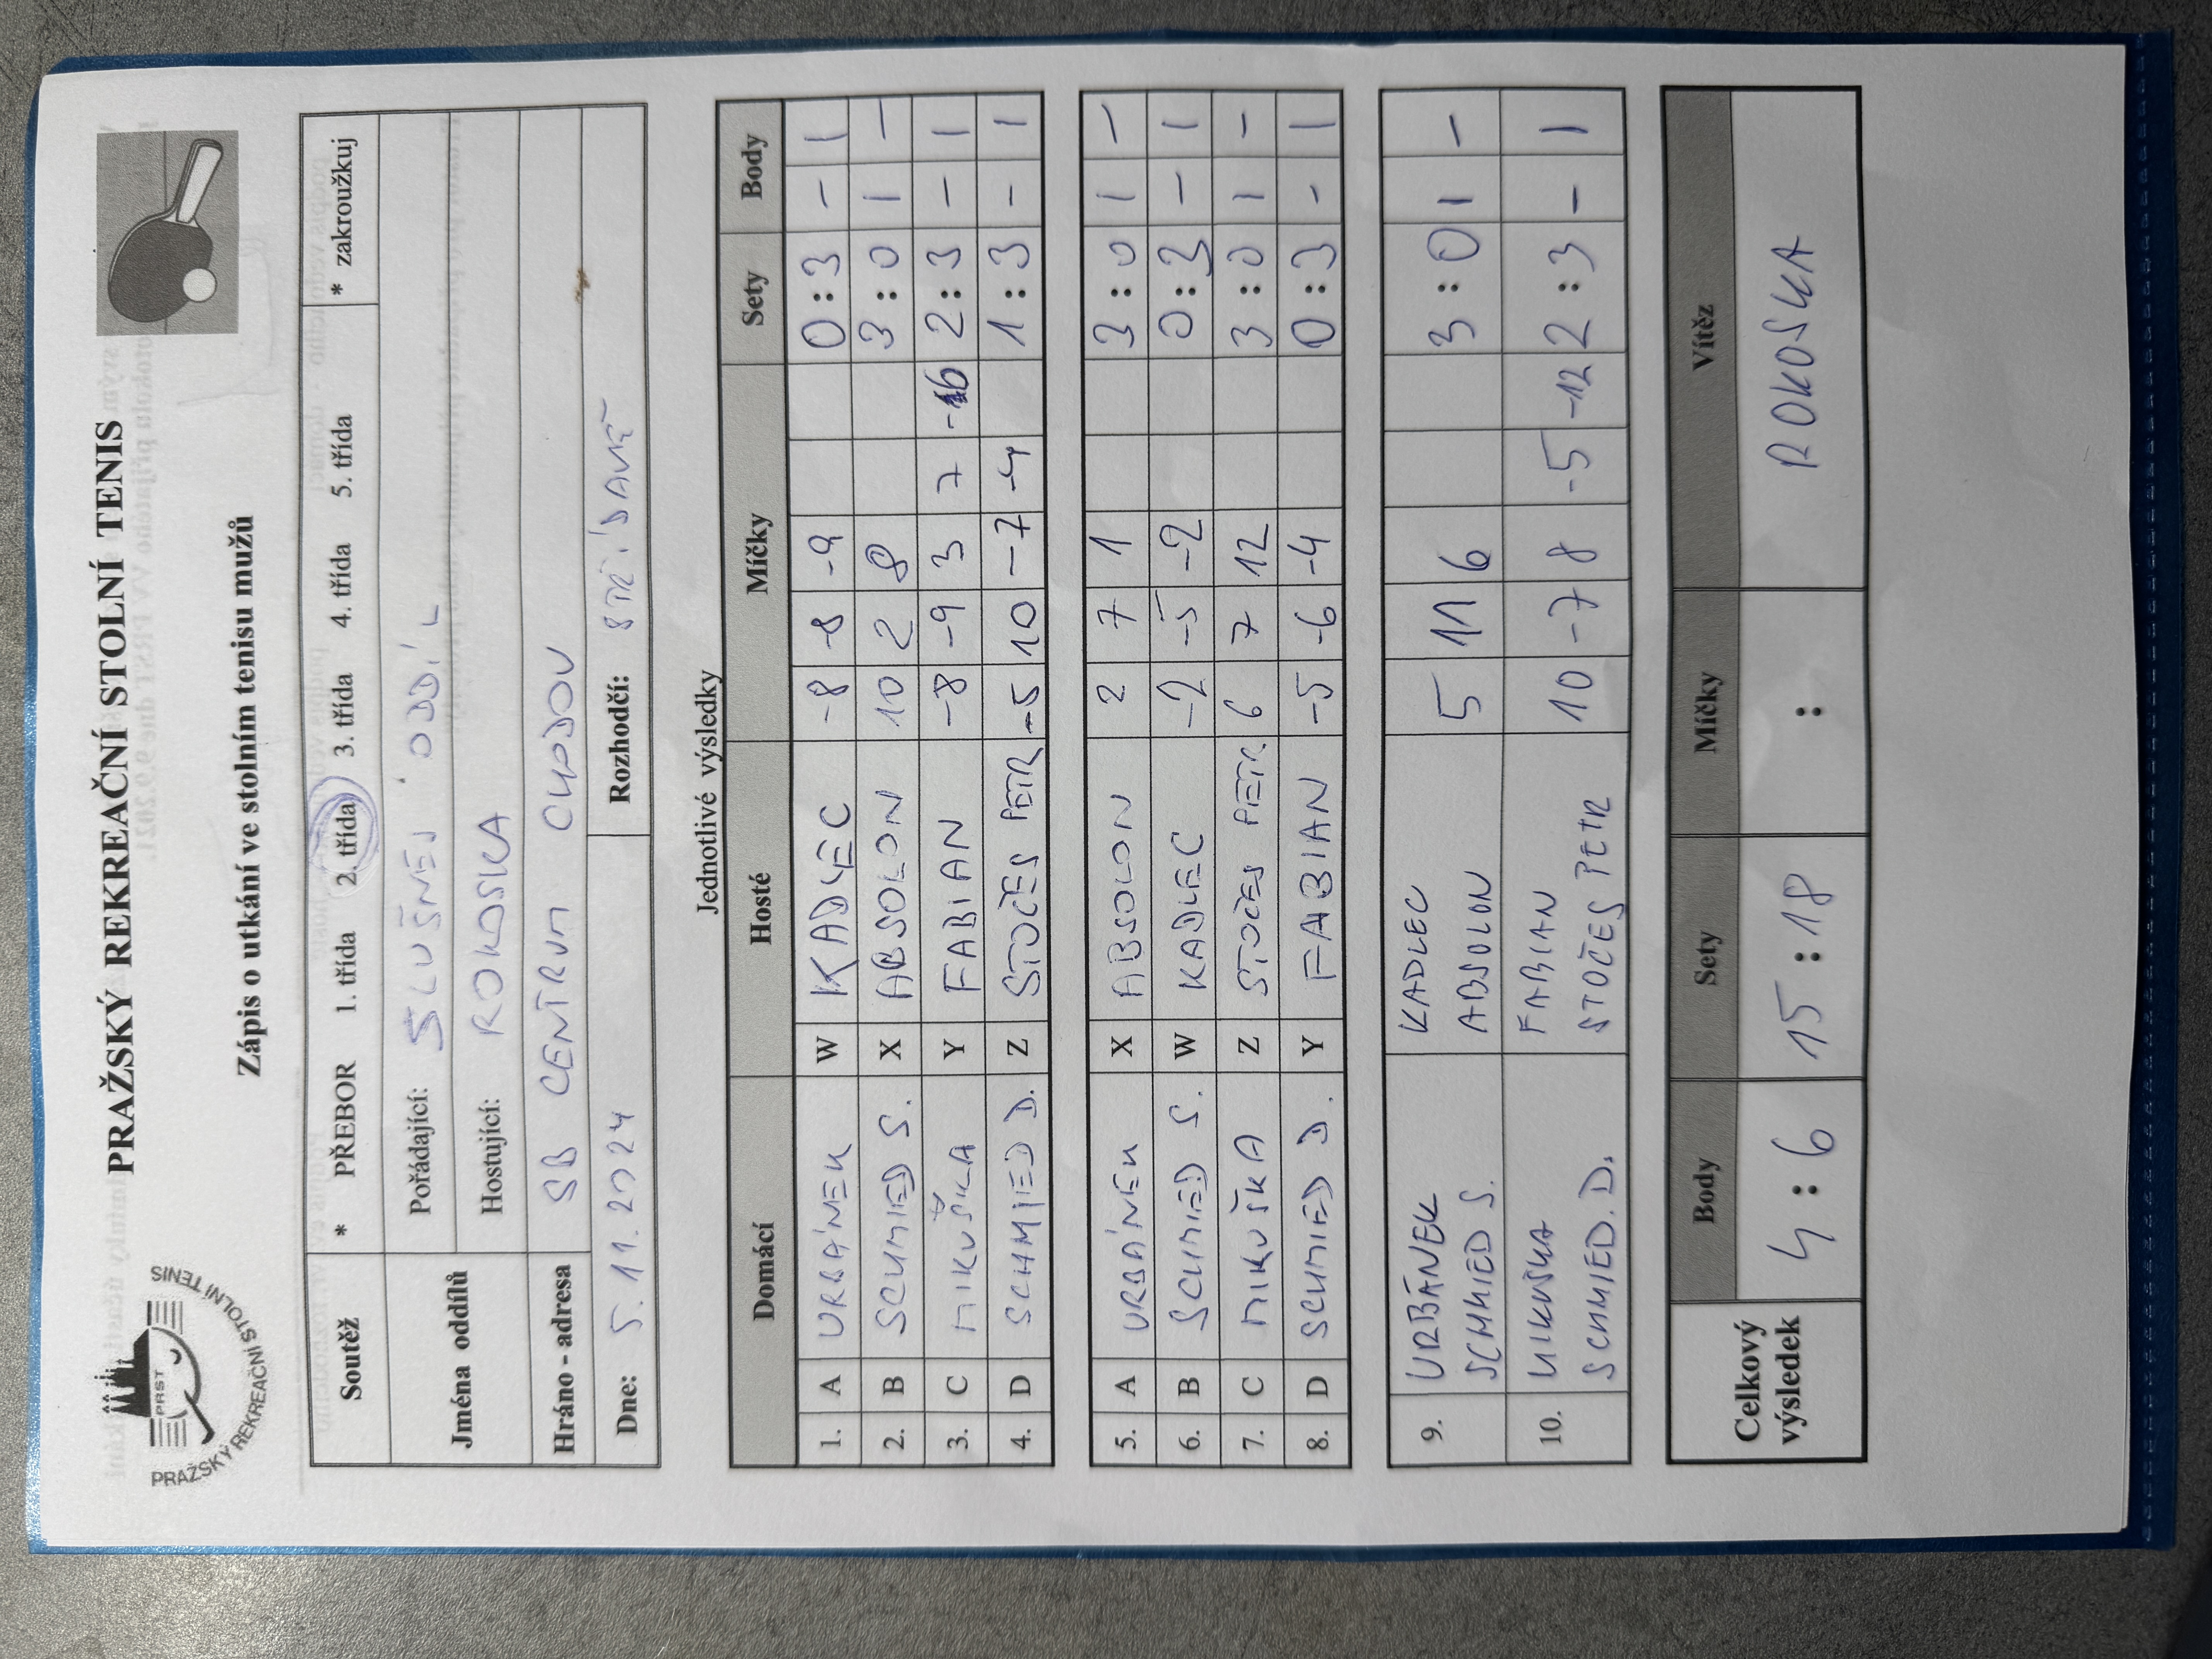 PRAŽSKÝ REKREAČNÍ STOLNÍ TENIS
PRST
PRAŽSKÝ REKREAČNÍ STOLNÍ TENIS
Zápis o utkání ve stolním tenisu mužů
Soutěž * PŘEBOR 1. třída 2. třída 3. třída 4. třída 5. třída * zakroužkuj
Jména oddílů Pořádající: SLUŠNEJ ODDÍL
Hostující: ROKOSKA
Hráno - adresa SB CENTRUM CHODOV
Dne: 5.11.2024 Rozhodčí: STŘÍDAVĚ
Jednotlivé výsledky
Domácí Hosté Míčky Sety Body
1. A URBÁNEK W KADLEC -8 -8 -9 0 : 3 - 1
2. B SCHMIED S. X ABSOLON 10 2 8 3 : 0 1 -
3. C MIKUŠKA Y FABIAN -8 -9 3 7 -16 2 : 3 - 1
4. D SCHMIED D. Z STOČES PETR -5 10 -7 -4 1 : 3 - 1
5. A URBÁNEK X ABSOLON 2 7 1 3 : 0 1 -
6. B SCHMIED S. W KADLEC -2 -5 -2 0 : 3 - 1
7. C MIKUŠKA Z STOČES PETR 6 7 12 3 : 0 1 -
8. D SCHMIED D. Y FABIAN -5 -6 -4 0 : 3 - 1
9. URBÁNEK KADLEC 5 11 6 3 : 0 1 -
SCHMIED S. ABSOLON
10. MIKUŠKA FABIAN 10 -7 8 -5 -12 2 : 3 - 1
SCHMIED D. STOČES PETR
Celkový výsledek Body Sety Míčky Vítěz
4 : 6 15 : 18 : ROKOSKA